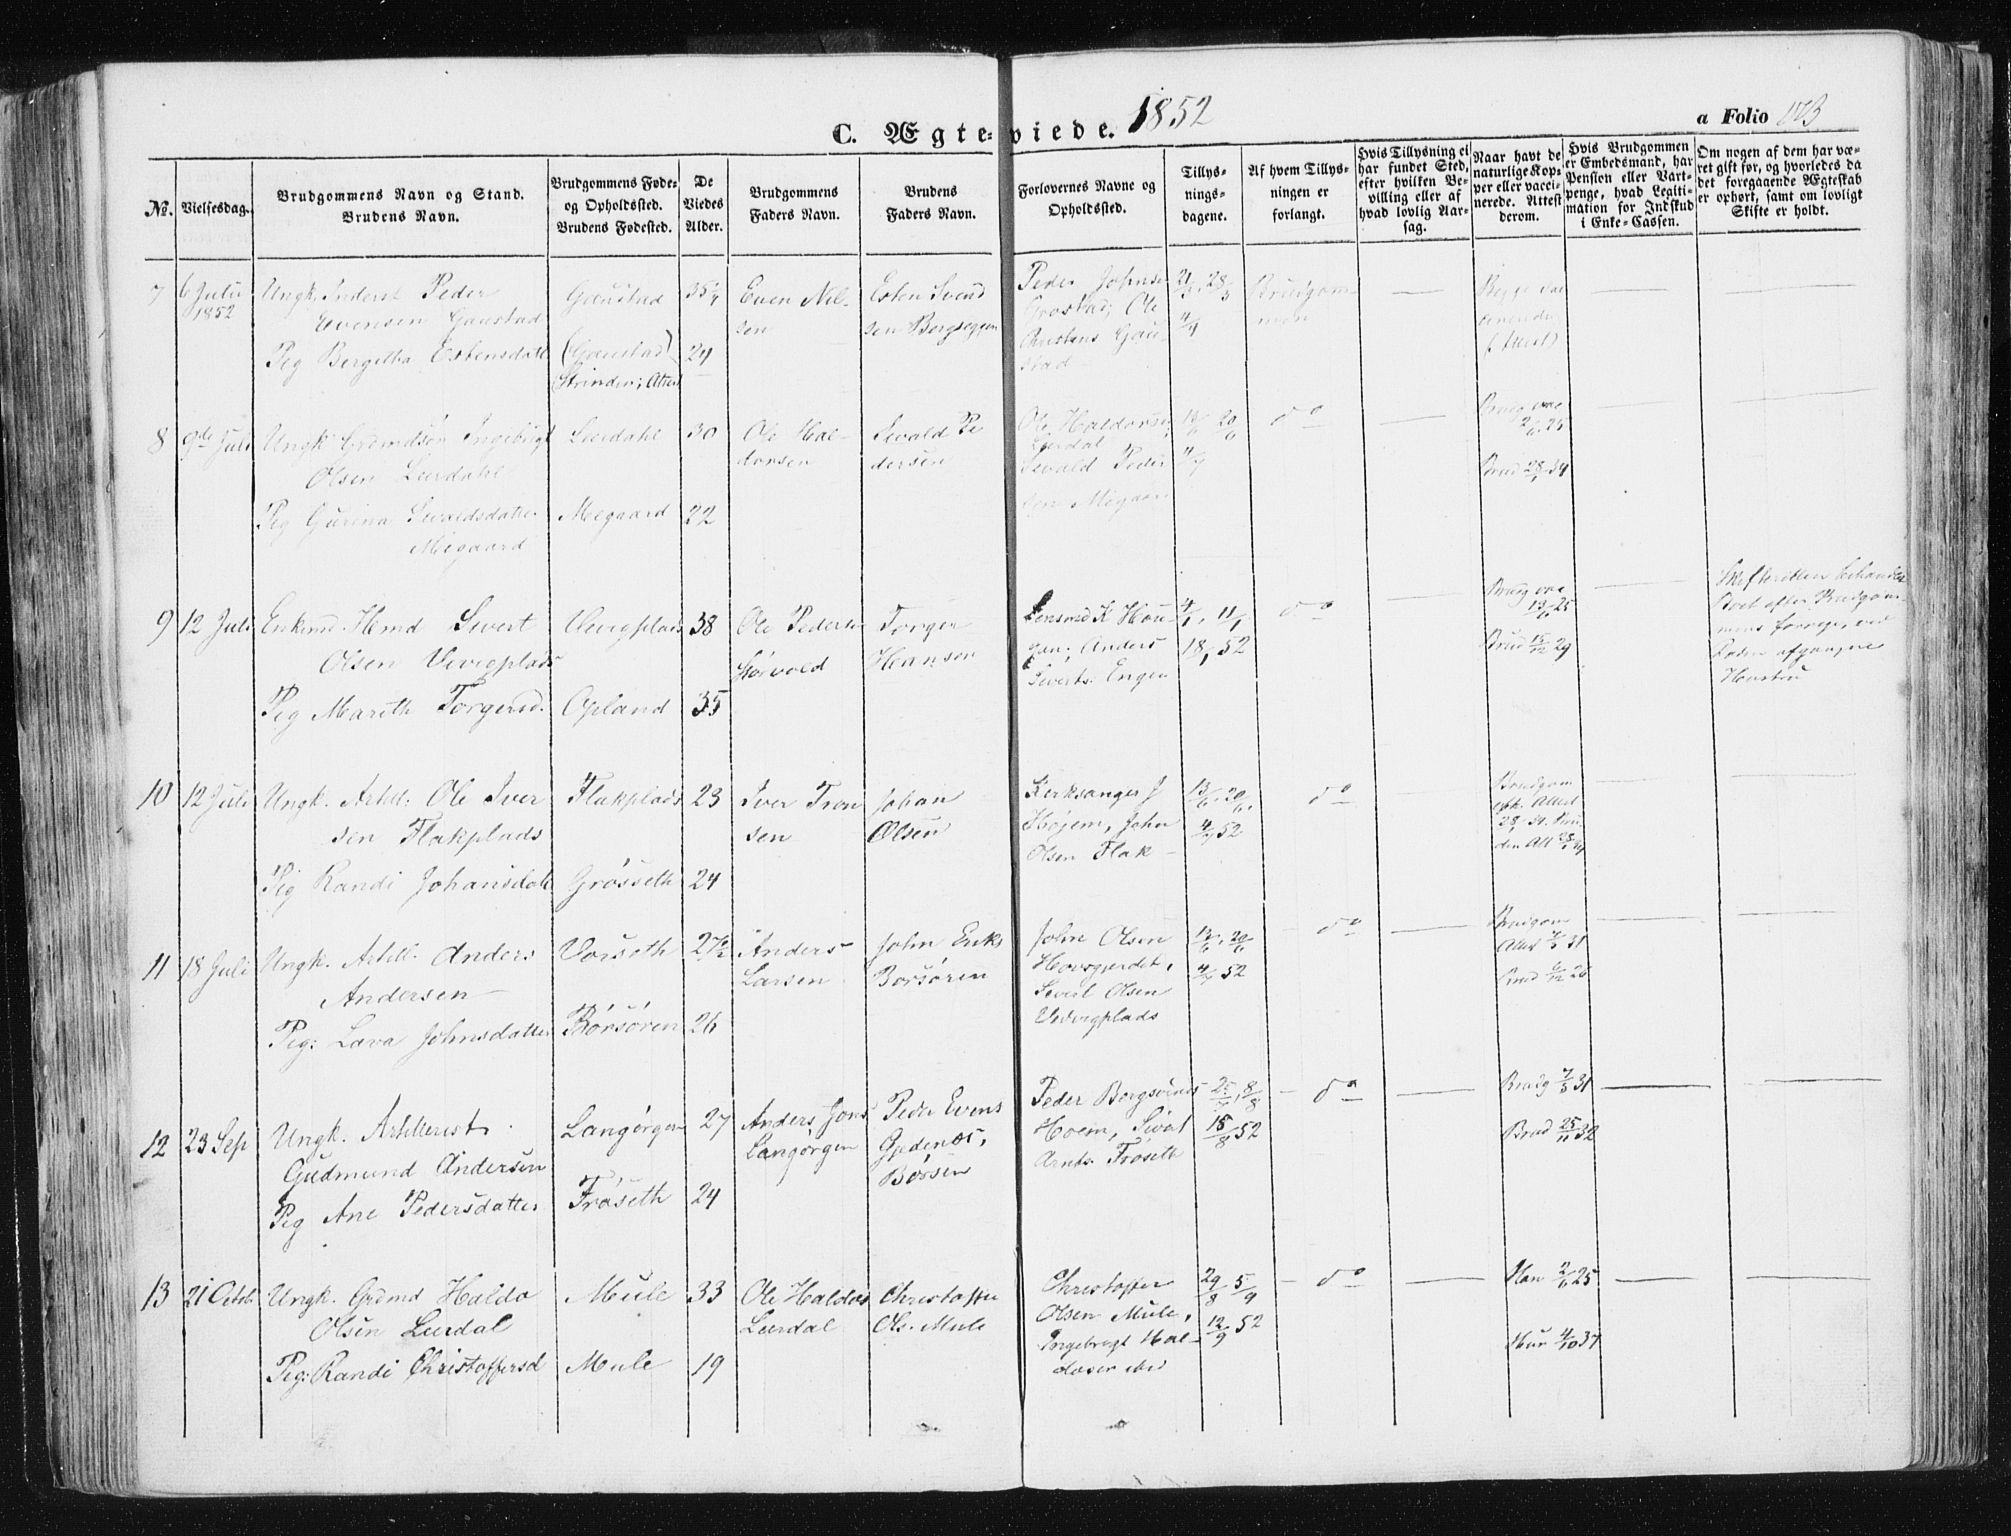 C. Ægte-viede. 1852
a Folio 173
No.
Vielsesdag.
Brudgommens Navn og Stand.
Brudens Navn.
Brudgommens Føde-
og Opholdssted.
Brudens Fødested.
De
Viedes
Alder.
Brudgommens
Faders Navn.
Brudens
Faders Navn.
Forlovernes Navne og
Opholdssted.
Tillys-
nings-
dagene.
Af hvem Tillys-
ningen er
forlangt.
Hvis Tillysning ei
har fundet Sted,
efter hvilken Be-
villing eller af
hvad lovlig Aar-
sag.
Naar havt de
naturlige Kop-
per eller vacci-
nerede. Attest
derom.
Hvis Brudgommen
er Embedsmand, har
Pension eller Vart-
penge, hvad Legiti-
mation for Indskud
i Enke-Cassen.
Om nogen af dem har væ-
ret gift før, og hvorledes da
det foregaaende Ægteskab
er ophørt, samt om lovligt
Skifte er holdt.
7
6 Juli
1852
Ungk. Inderst Peder
Evensen Gaustad
Pig Bergitha Estensdatt
Gaustad
(Gaustad)
Strinden; Attest
35 1/4
24
Even Nil-
sen
Esten Svend
sen Bergseggen
Peder Johnsen
Grostad; Ole
Christens Gau-
stad
21/3, 28/3
4/4
Brudgom-
men
Begge vac
cinerede
(Attest)
8
9de Juli
Ungk Grdmdsøn Ingebrigt
Olsen Leerdahl
Pig Gurina Sivaldsdatter
Megaard
Leerdahl
Megaard
30
22
Ole Hal-
dorsen
Sivald Pe
dersen
Ole Haldorsen
Leerdal
Sivald Peder
sen Megaard
13/6 20/6
4/7
do
Brudg vac
2/6 25
Brud 28/1 34
9
12 Juli
Enkemd. Hmd Sivert
Olsen Vevigplads
Pig Mareth Torgersd.
Vevigplads
Opland
38
35
Ole Pederse
Storvold
Torger
Hansen
Lensmd K Hou-
gan; Anders
Siverts. Engen
4/1, 11/1
18, 52
do
Brudg vac
13/6 25
Brud 15/12 29
Skifteretten behandler
Boet efter Brudgom-
mens forrige, ved
Døden afgangne
Houstru
10
12 Juli
Ungk. Artill: Ole Iver
sen Flakplads
Pig Randi Johansdatt
Flakplads
Grøsseth
23
24
Iver Tron
sen
Johan
Olsen
Kirksanger J
Højem, John
Olsen Flak
13/6, 20/6,
4/7 52
do
Brudgom
11
18 Juli
Ungk. Artill. Anders
Andersen
Pig: Lava Johnsdatter
Vorseth
Børsøren
27 1/2
26
Anders
Larsen
John Eriks
Børsøren
John Olsen
Hovsgjerdet,
Sivert Olsen
Vevigplads
13/6, 20/6
4/7 52
do
Brudgom
Attest 7/5 31
Brud 6/12 26
12
23 Sep
Ungk. Artillerist
Gudmund Andersen
Pig Ane Pedersdatter
Langørgen
Frøseth
27
24
Anders Jons
Langørgen
Peder Evens
Gjedenæs,
Børsen
Peder Bergsvends
Hoem, Sivat
Arnts. Frøseth
25/7, 8/8
15/8 52
do
Brudg 7/5 31
Brud 25/11 32
13
21 Octob.
Ungk. Grdmd Haldo
Olsen Leerdal
Pig: Randi Christoffersd
Mule
Mule
33
19
Ole Haldors
Leerdal
Christoffer
Ols. Mule
Christoffer
Olsen Mule,
Ingebrigt Hal-
dosen ibid
29/8 5/9
12/9 52
do
Han 2/6 25
Hun 4/10 37